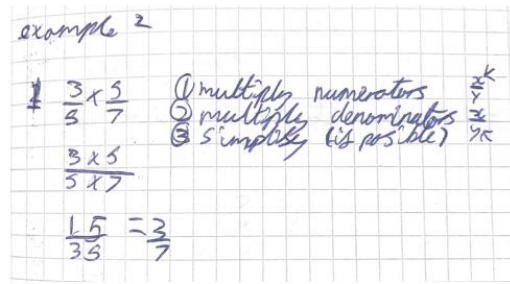 example 2
1 3/5 × 5/7 ① multiply numerators xK/Y
② multiply denominators x/YK
③ simplify (if posible)
3 × 5 / 5 × 7
15/35 = 3/7